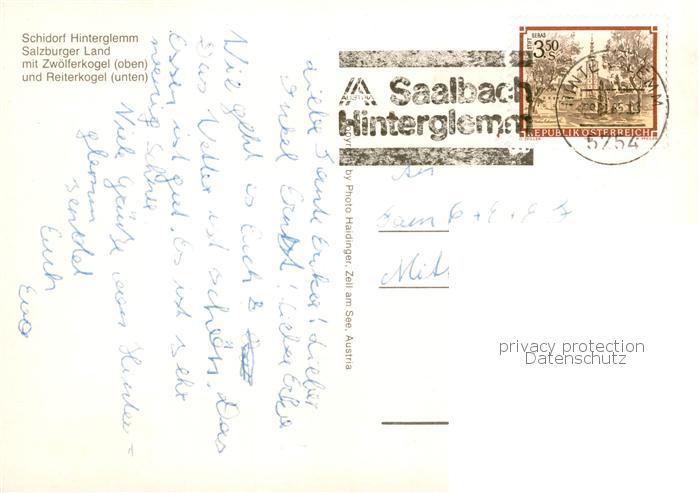 Schidorf Hinterglemm
Salzburger Land
mit Zwölferkogel (oben)
und Reiterkogel (unten)
Liebe Tante Erika! Lieber
Onkel Ernst! Liebe Erika!
Wie geht es Euch?
Das Wetter ist schön. Das
Essen ist gut. Es ist sehr
wenig Schnee
Viele Grüße aus Hinter=
glemm
sendet
Euch
by Photo Haidinger, Zell am See, Austria
AUSTRIA
Saalbach
Hinterglemm
STIFT GERAS
3.50
S
REPUBLIK ÖSTERREICH
HINTERGLEMM
5754
An
Fam
privacy protection
Datenschutz